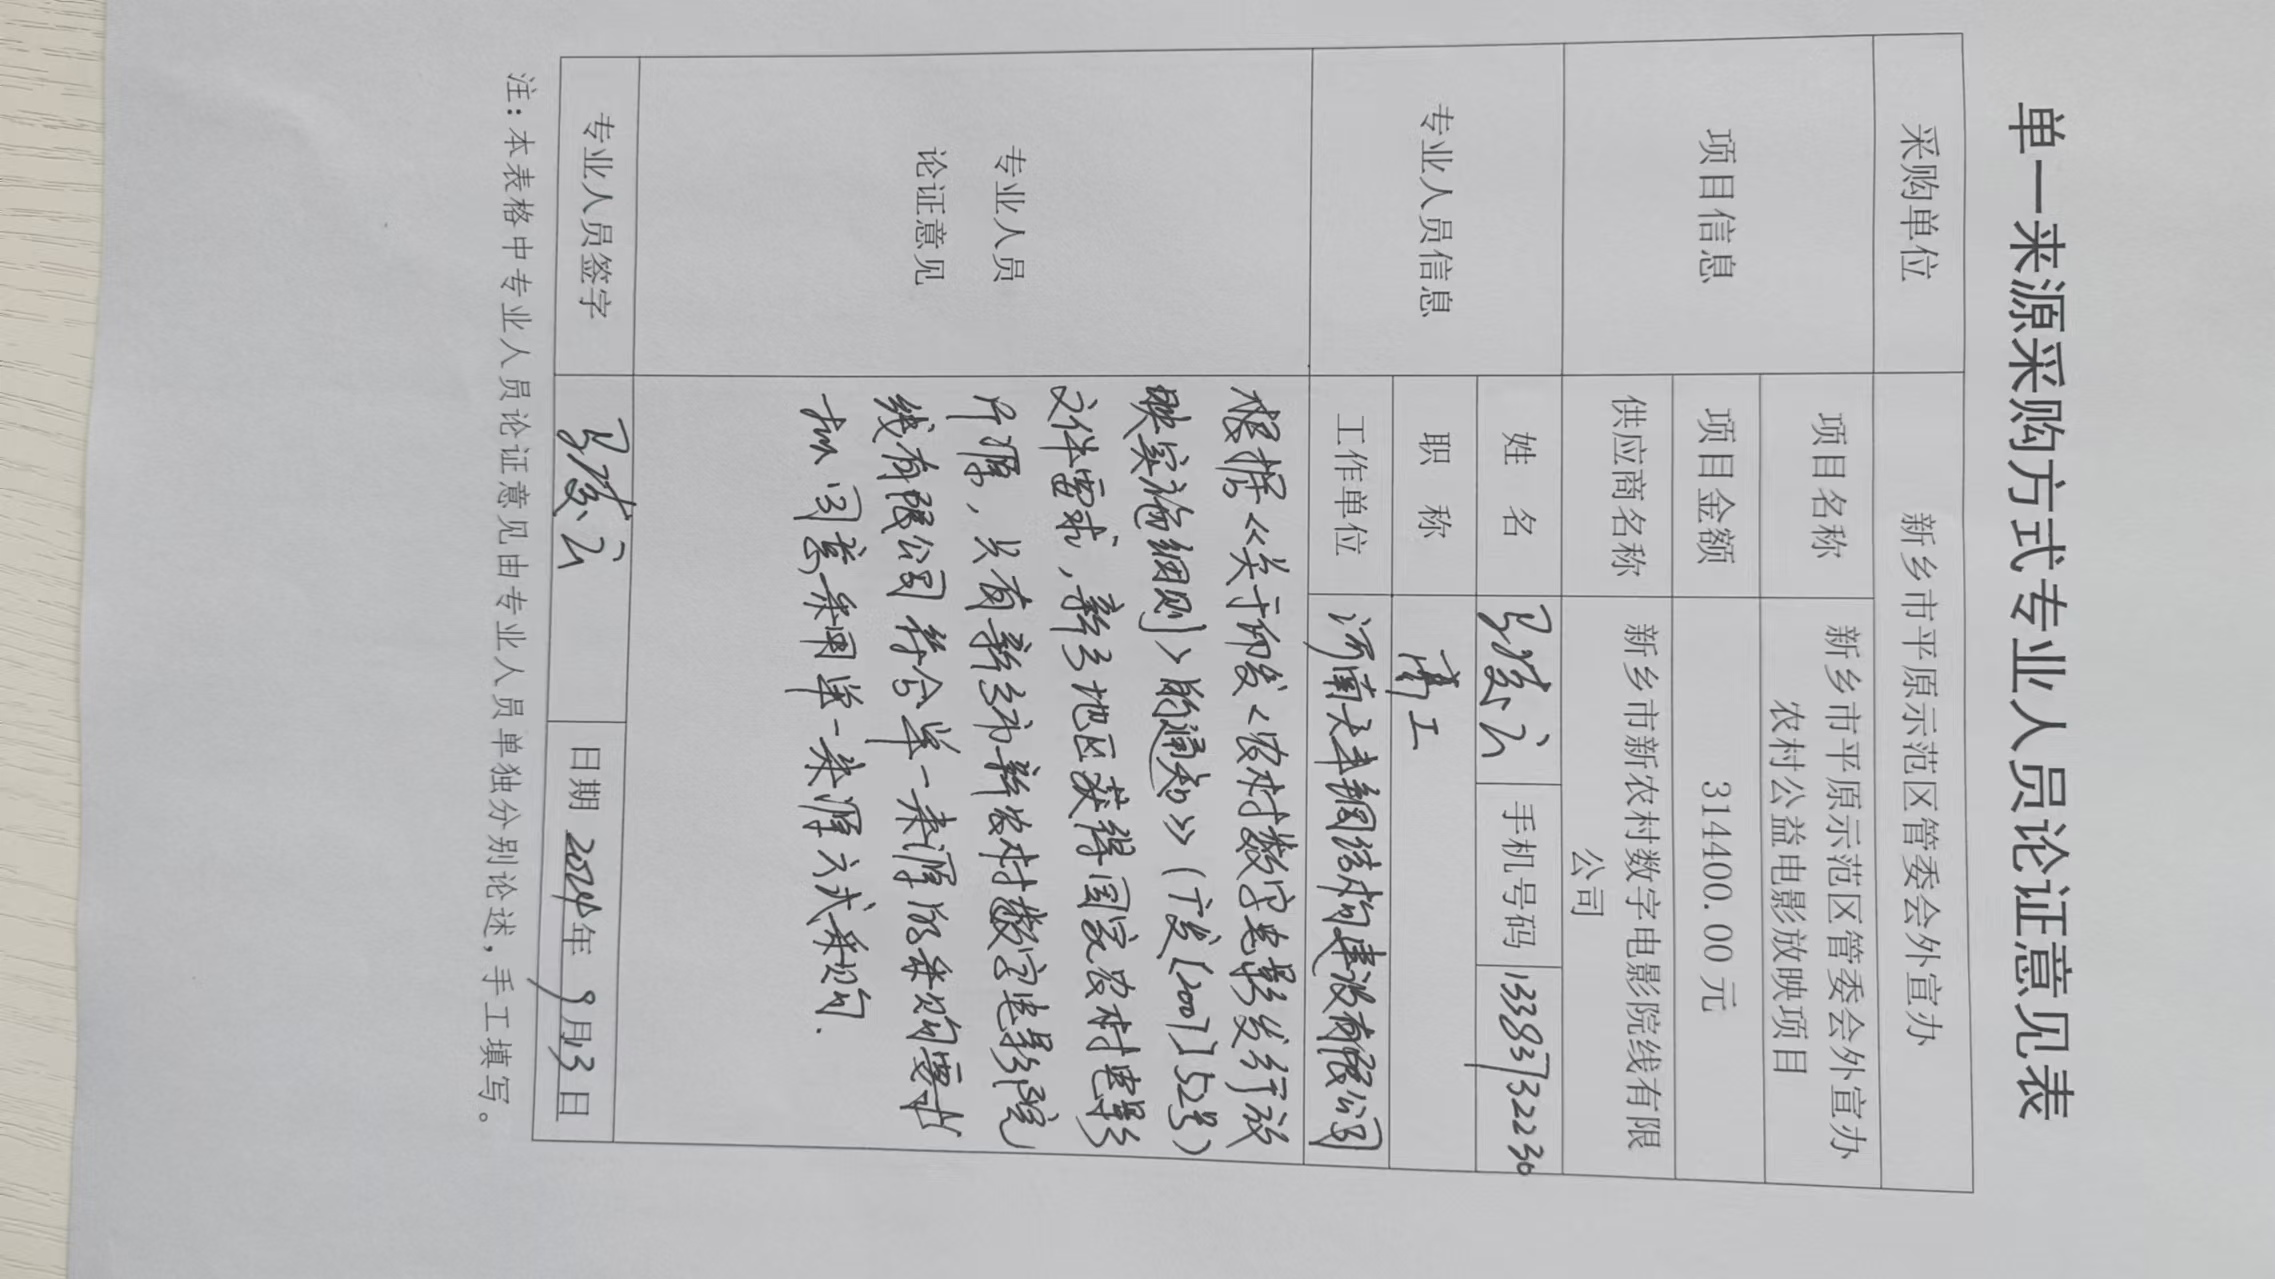 单一来源采购方式专业人员论证意见表
采购单位 新乡市平原示范区管委会外宣办
项目信息 项目名称 新乡市平原示范区管委会外宣办
农村公益电影放映项目
项目金额 314400.00 元
供应商名称 新乡市新农村数字电影院线有限
公司
专业人员信息 姓 名 手机号码 13383732230
职 称 高工
工作单位 河南天丰钢结构建设有限公司
专业人员
论证意见
根据《关于印发<农村数字电影发行放
映实施细则>的通知》(广发[2007]52号)
文件要求,新乡地区获得国家农村电影
片源,只有新乡市新农村数字电影院
线有限公司符合单一来源的采购需求
同意采用单一来源方式采购.
专业人员签字 日期 2024年 9月13日
注:本表格中专业人员论证意见由专业人员单独分别论述,手工填写。